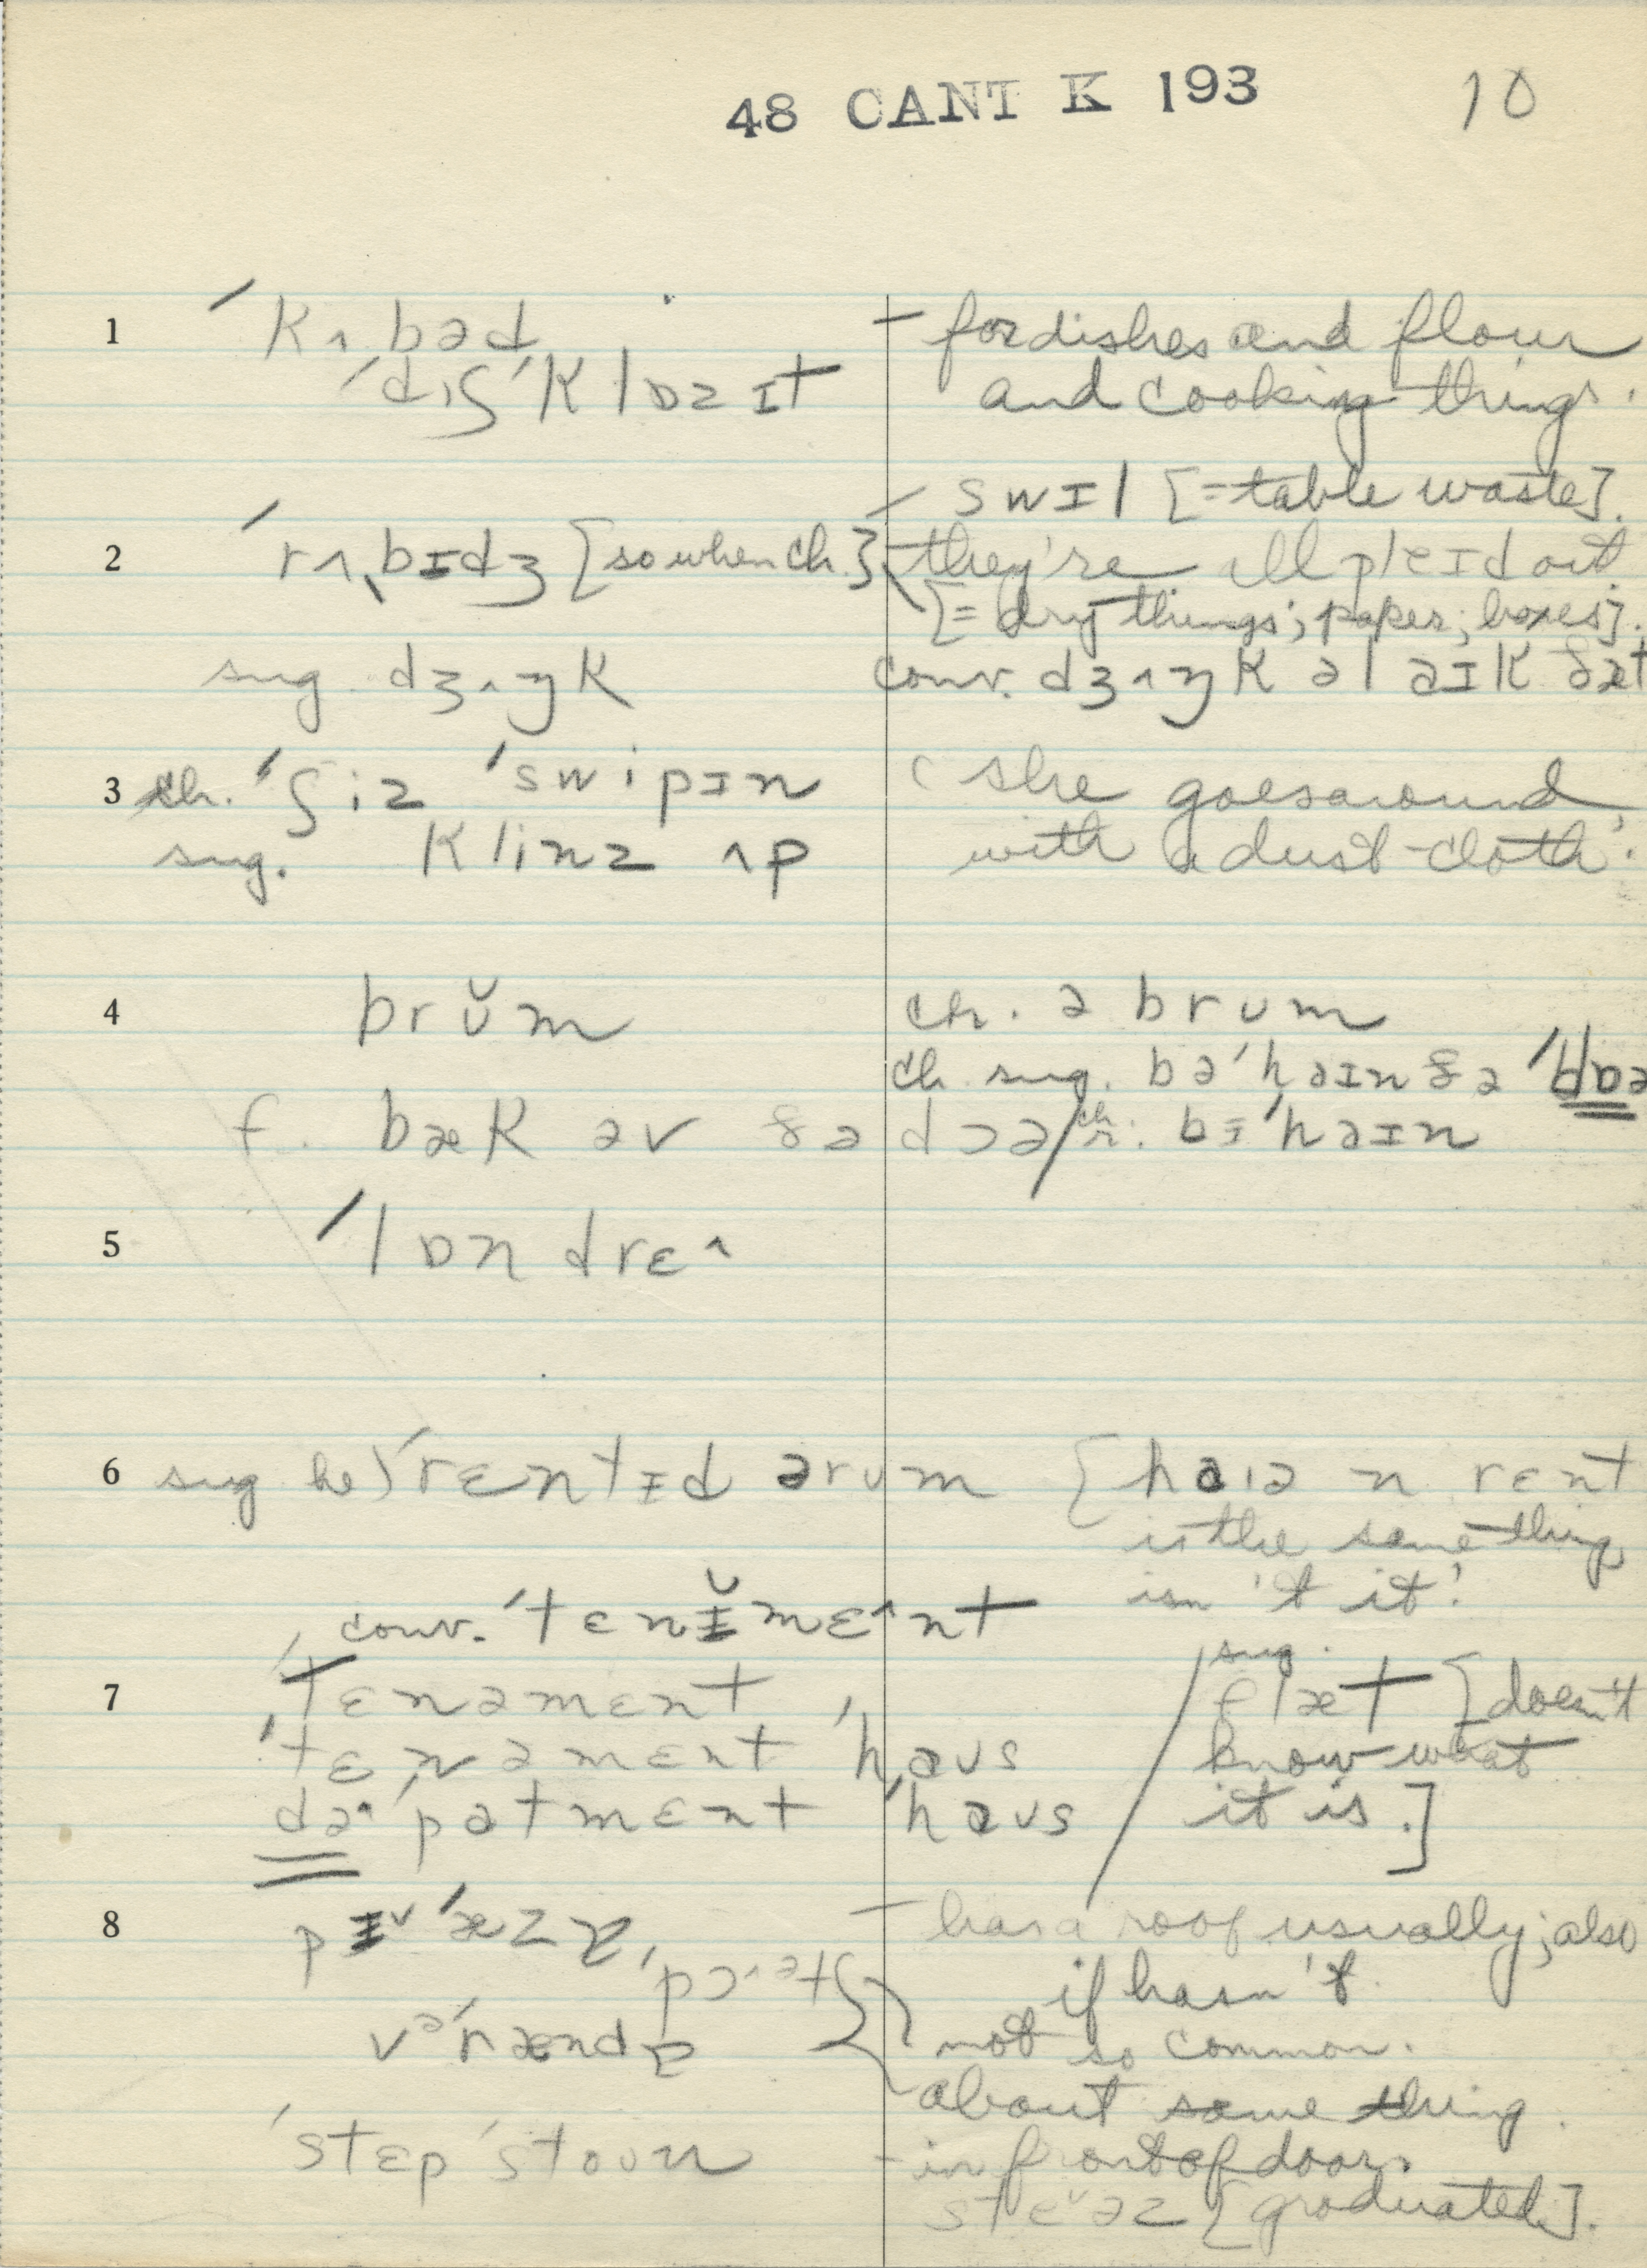 48 CANT K 193 10
1 ˈkʌbəd – for dishes and flour
ˈdɪʃˈklɒzɪt and cooking things.
swɪl [=table waste].
2 ˈrʌbɪdʒ [so when ch.] they're all pleɪd out
[= dry things; paper; boxes].
sug. dʒʌŋk conv. dʒʌŋk əl aɪk ðæt
3 ch. ˈʃiz ˈswipɪn 'she goes around
sug. klinz ʌp with a dust-cloth'.
4 brŭm ch. ə brum
ch. sug. bəˈhaɪn ðə
f. bæk əv ðə dɔə / ch. bɪˈhaɪn
5 ˈlɒndrɛ^
6 sug he) ˈrɛntɪd ə rum [haɪə n rɛnt
is the same thing
isn't it!
conv. ˈtɛnɪ̆mɛ^nt
sug.
7 ˈtɛnəmɛnt / flæt [doesn't
ˈtɛnəmɛnt ˈhaus know what
də^ˈpatmɛnt ˈhaus it is.]
8 – has a roof usually; also
if hasn't.
vəˈrændə not so common.
about same thing.
ˈstɛpˈstoun – in front of door.
steˇəz [graduated].